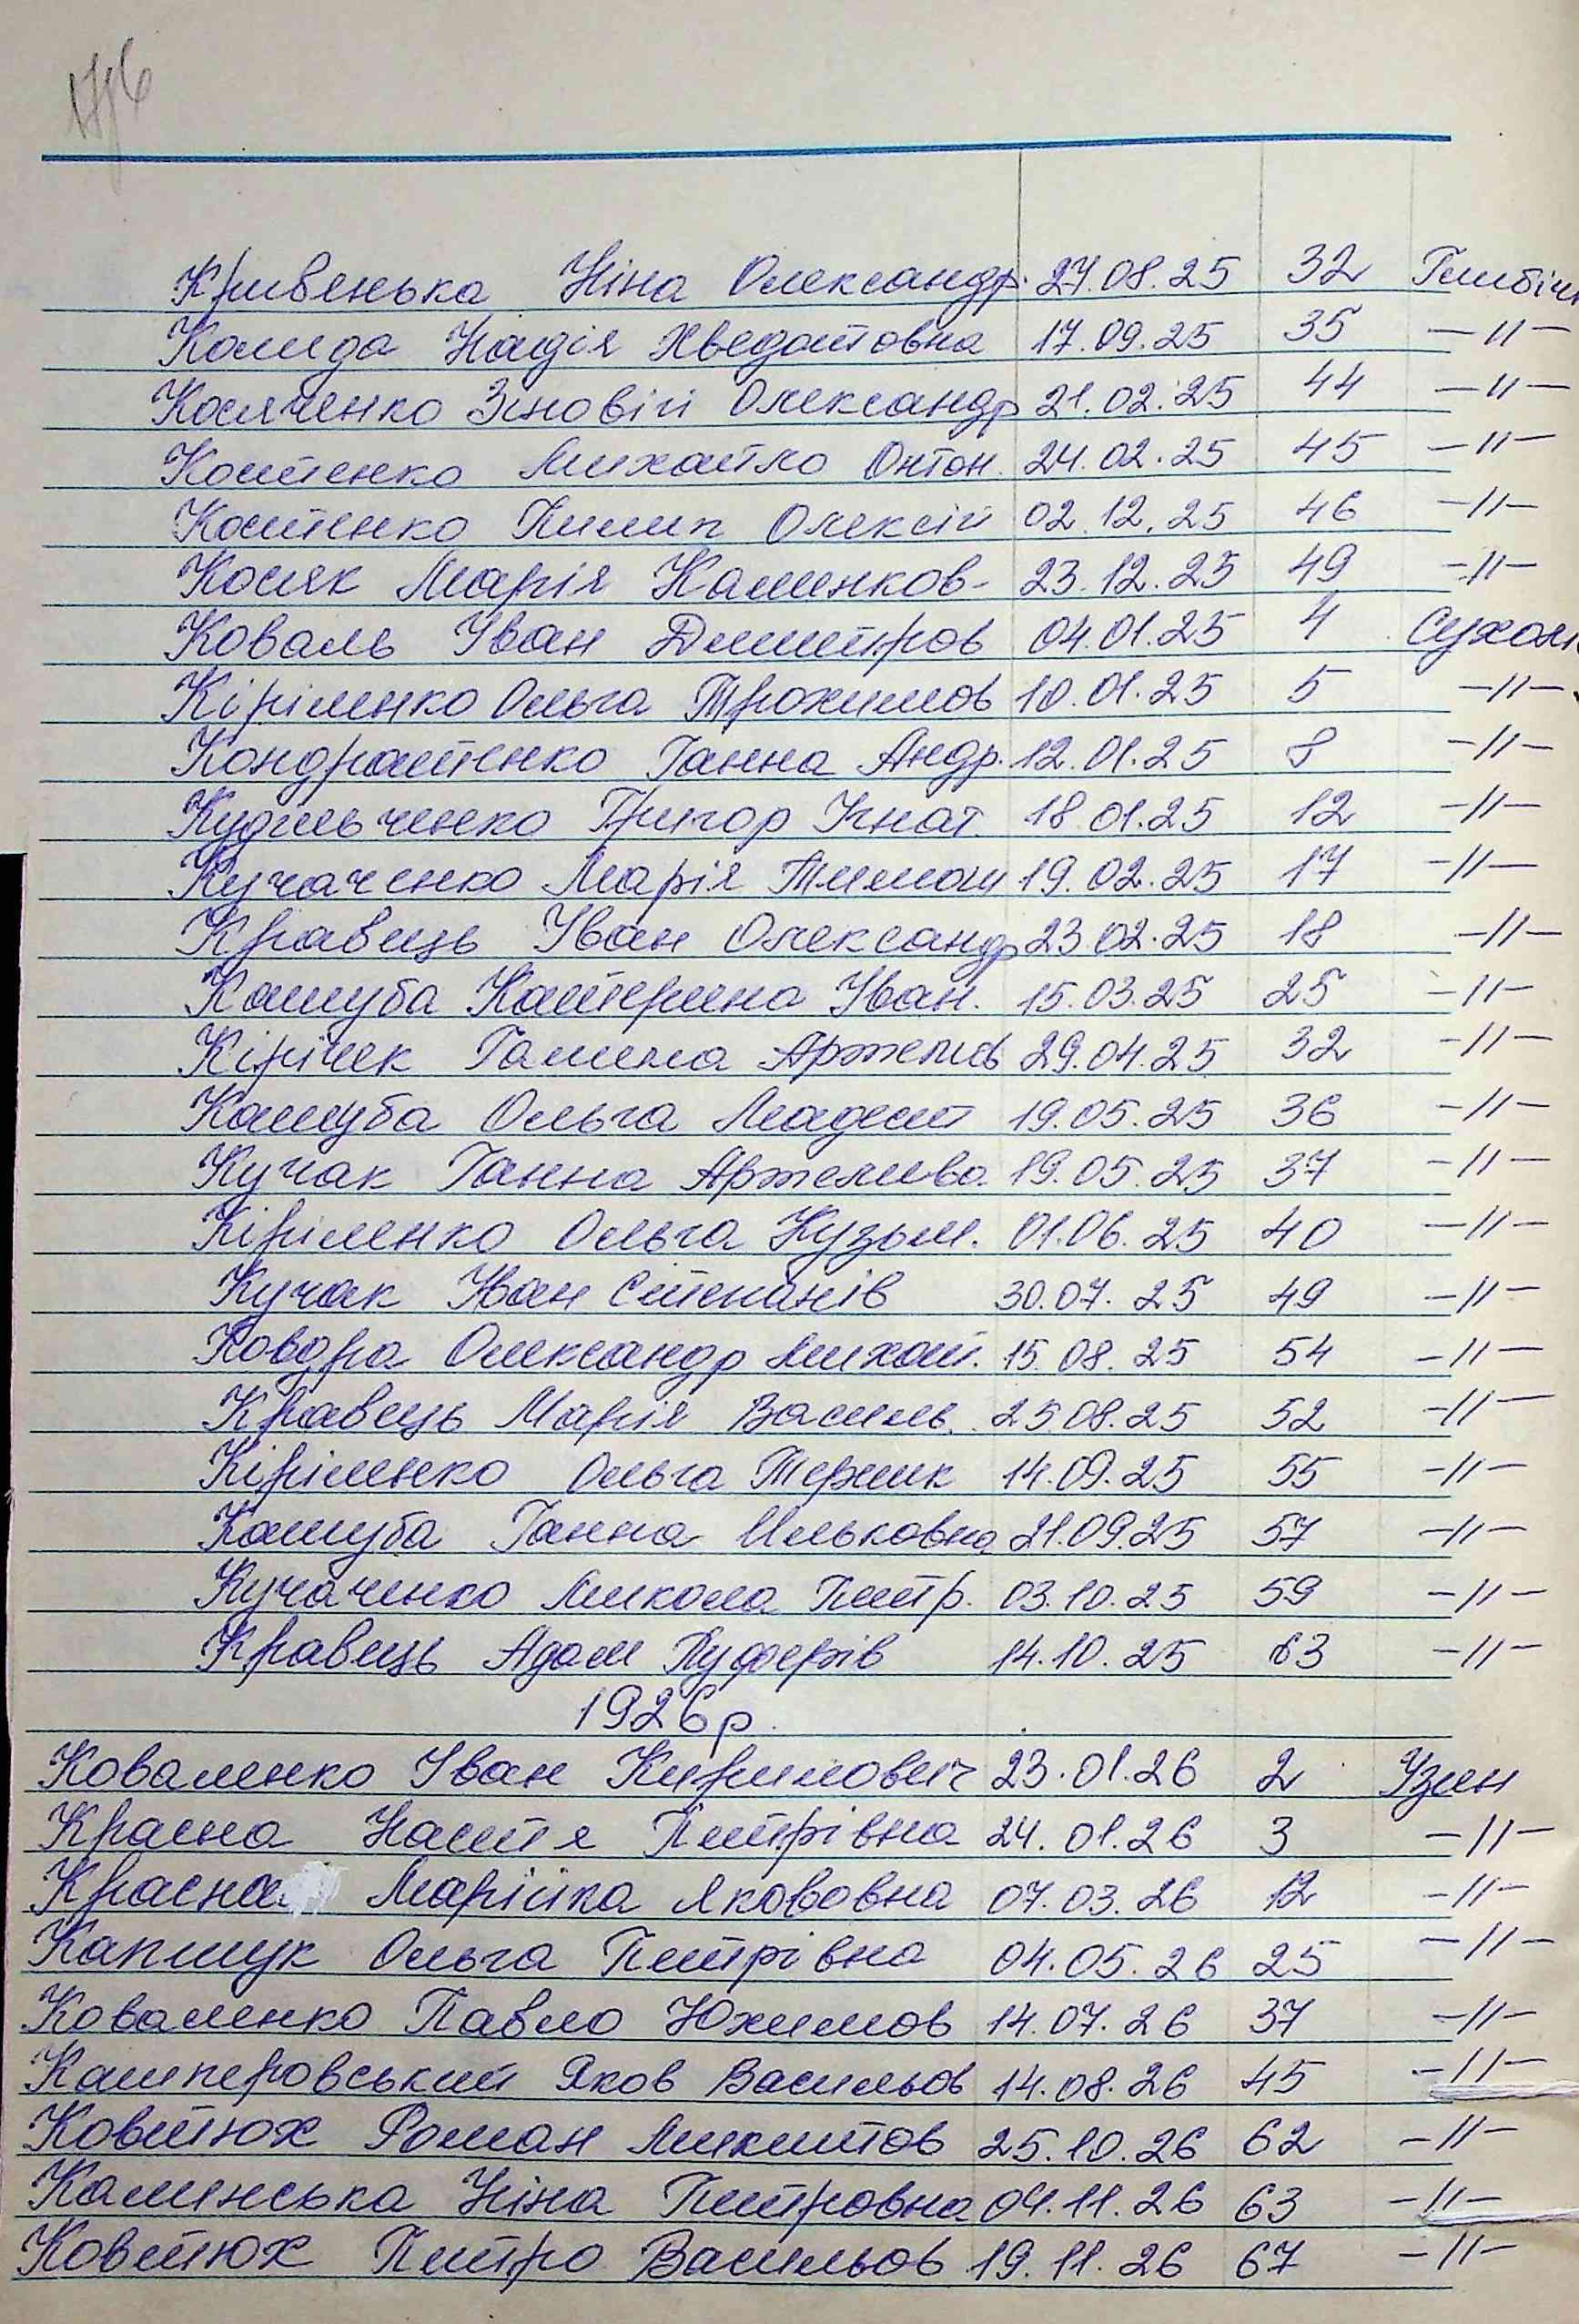 Кривенька Ніна Олександр. 27.08.25 32
Надія Хведотовна 17.09.25 35 —〃—
Косяченко Зіновій Олександр 21.02.25 44 —〃—
Костенко Михайло Онтон. 24.02.25 45 —〃—
Костенко Пилип Олексій 02.12.25 46 —〃—
Косяк Марія 23.12.25 49 —〃—
Коваль Іван Дмитров 04.01.25 4
Кіріленко Ольга Трохимов 10.01.25 5 —〃—
Кондратенко Ганна Андр. 12.01.25 8 —〃—
Кудільченко Григор Ігнат. 18.01.25 12 —〃—
Кучаченко Марія Тимош 19.02.25 17 —〃—
Кравець Іван Олександр 23.02.25 18 —〃—
Кашуба Катерина Іван. 15.03.25 25 —〃—
Кірічек Галина Артемів 29.04.25 32 —〃—
Кашуба Ольга 19.05.25 36 —〃—
Кучак Ганна 19.05.25 37 —〃—
Кіріленко Ольга Кузьм. 01.06.25 40 —〃—
Кучак Іван Степанів 30.07.25 49 —〃—
Ковдра Олександр Михай. 15.08.25 54 —〃—
Кравець Марія Василь. 25.08.25 52 —〃—
Кіріленко Ольга 14.09.25 55 —〃—
Кашуба Ганна Ильковна 21.09.25 57 —〃—
Кучаченко Микола Петр. 03.10.25 59 —〃—
Кравець Адам 14.10.25 63 —〃—
1926р.
Коваленко Іван Кирилович 23.01.26 2 Узин
Красна Настя Петрівна 24.01.26 3 —〃—
Красна Марійка Якововна 07.03.26 12 —〃—
Капшук Ольга Петрівна 04.05.26 25 —〃—
Коваленко Павло Юхимов 14.07.26 37 —〃—
Кашперовський Яков Васильов 14.08.26 45 —〃—
Ковтюх Роман Микитов 25.10.26 62 —〃—
Каминська Ніна Петровна 04.11.26 63 —〃—
Ковтюх Петро Васильов 19.11.26 67 —〃—